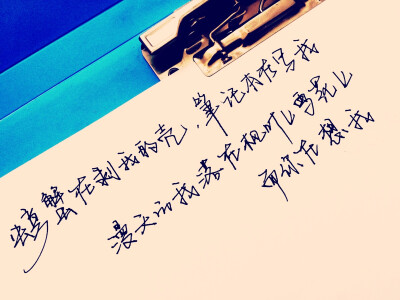 螃蟹在剥我的壳,笔记本在写我
漫天的我落在枫叶上雪花上
而你在想我